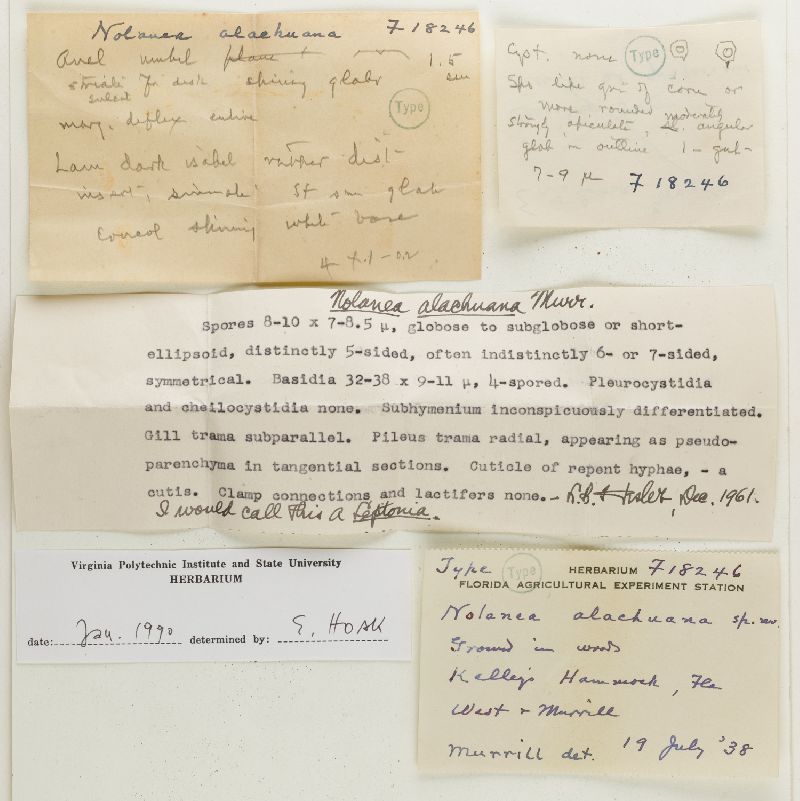 Nolanea alachuana F18246
Avel umbil plane 1.5 cm
striate to disk shining glabr
sulcat
Type
marg. deflex entire
Lam dark isabel rather dist
insert, sinuate St sm glab
concol shining white base
4 x .1-0.2.
Cyst. none Type
Sps like grn of corn or
more rounded moderately
strongly apiculate, angular
glob in outline 1-gut-
7-9 µ F18246
Nolanea alachuana Murr.
Spores 8-10 x 7-8.5 µ, globose to subglobose or short-
ellipsoid, distinctly 5-sided, often indistinctly 6- or 7-sided,
symmetrical. Basidia 32-38 x 9-11 µ, 4-spored. Pleurocystidia
and cheilocystidia none. Subhymenium inconspicuously differentiated.
Gill trama subparallel. Pileus trama radial, appearing as pseudo-
parenchyma in tangential sections. Cuticle of repent hyphae, - a
cutis. Clamp connections and lactifers none. - L.R. Hesler, Dec. 1961.
I would call this a Leptonia.
Virginia Polytechnic Institute and State University
HERBARIUM
date: Jan. 1990 determined by: E. HOAK
Type Type HERBARIUM F18246
FLORIDA AGRICULTURAL EXPERIMENT STATION
Nolanea alachuana sp. nov.
Ground in woods
Kelley's Hammock, Fla
West & Murrill
Murrill det. 19 July '38